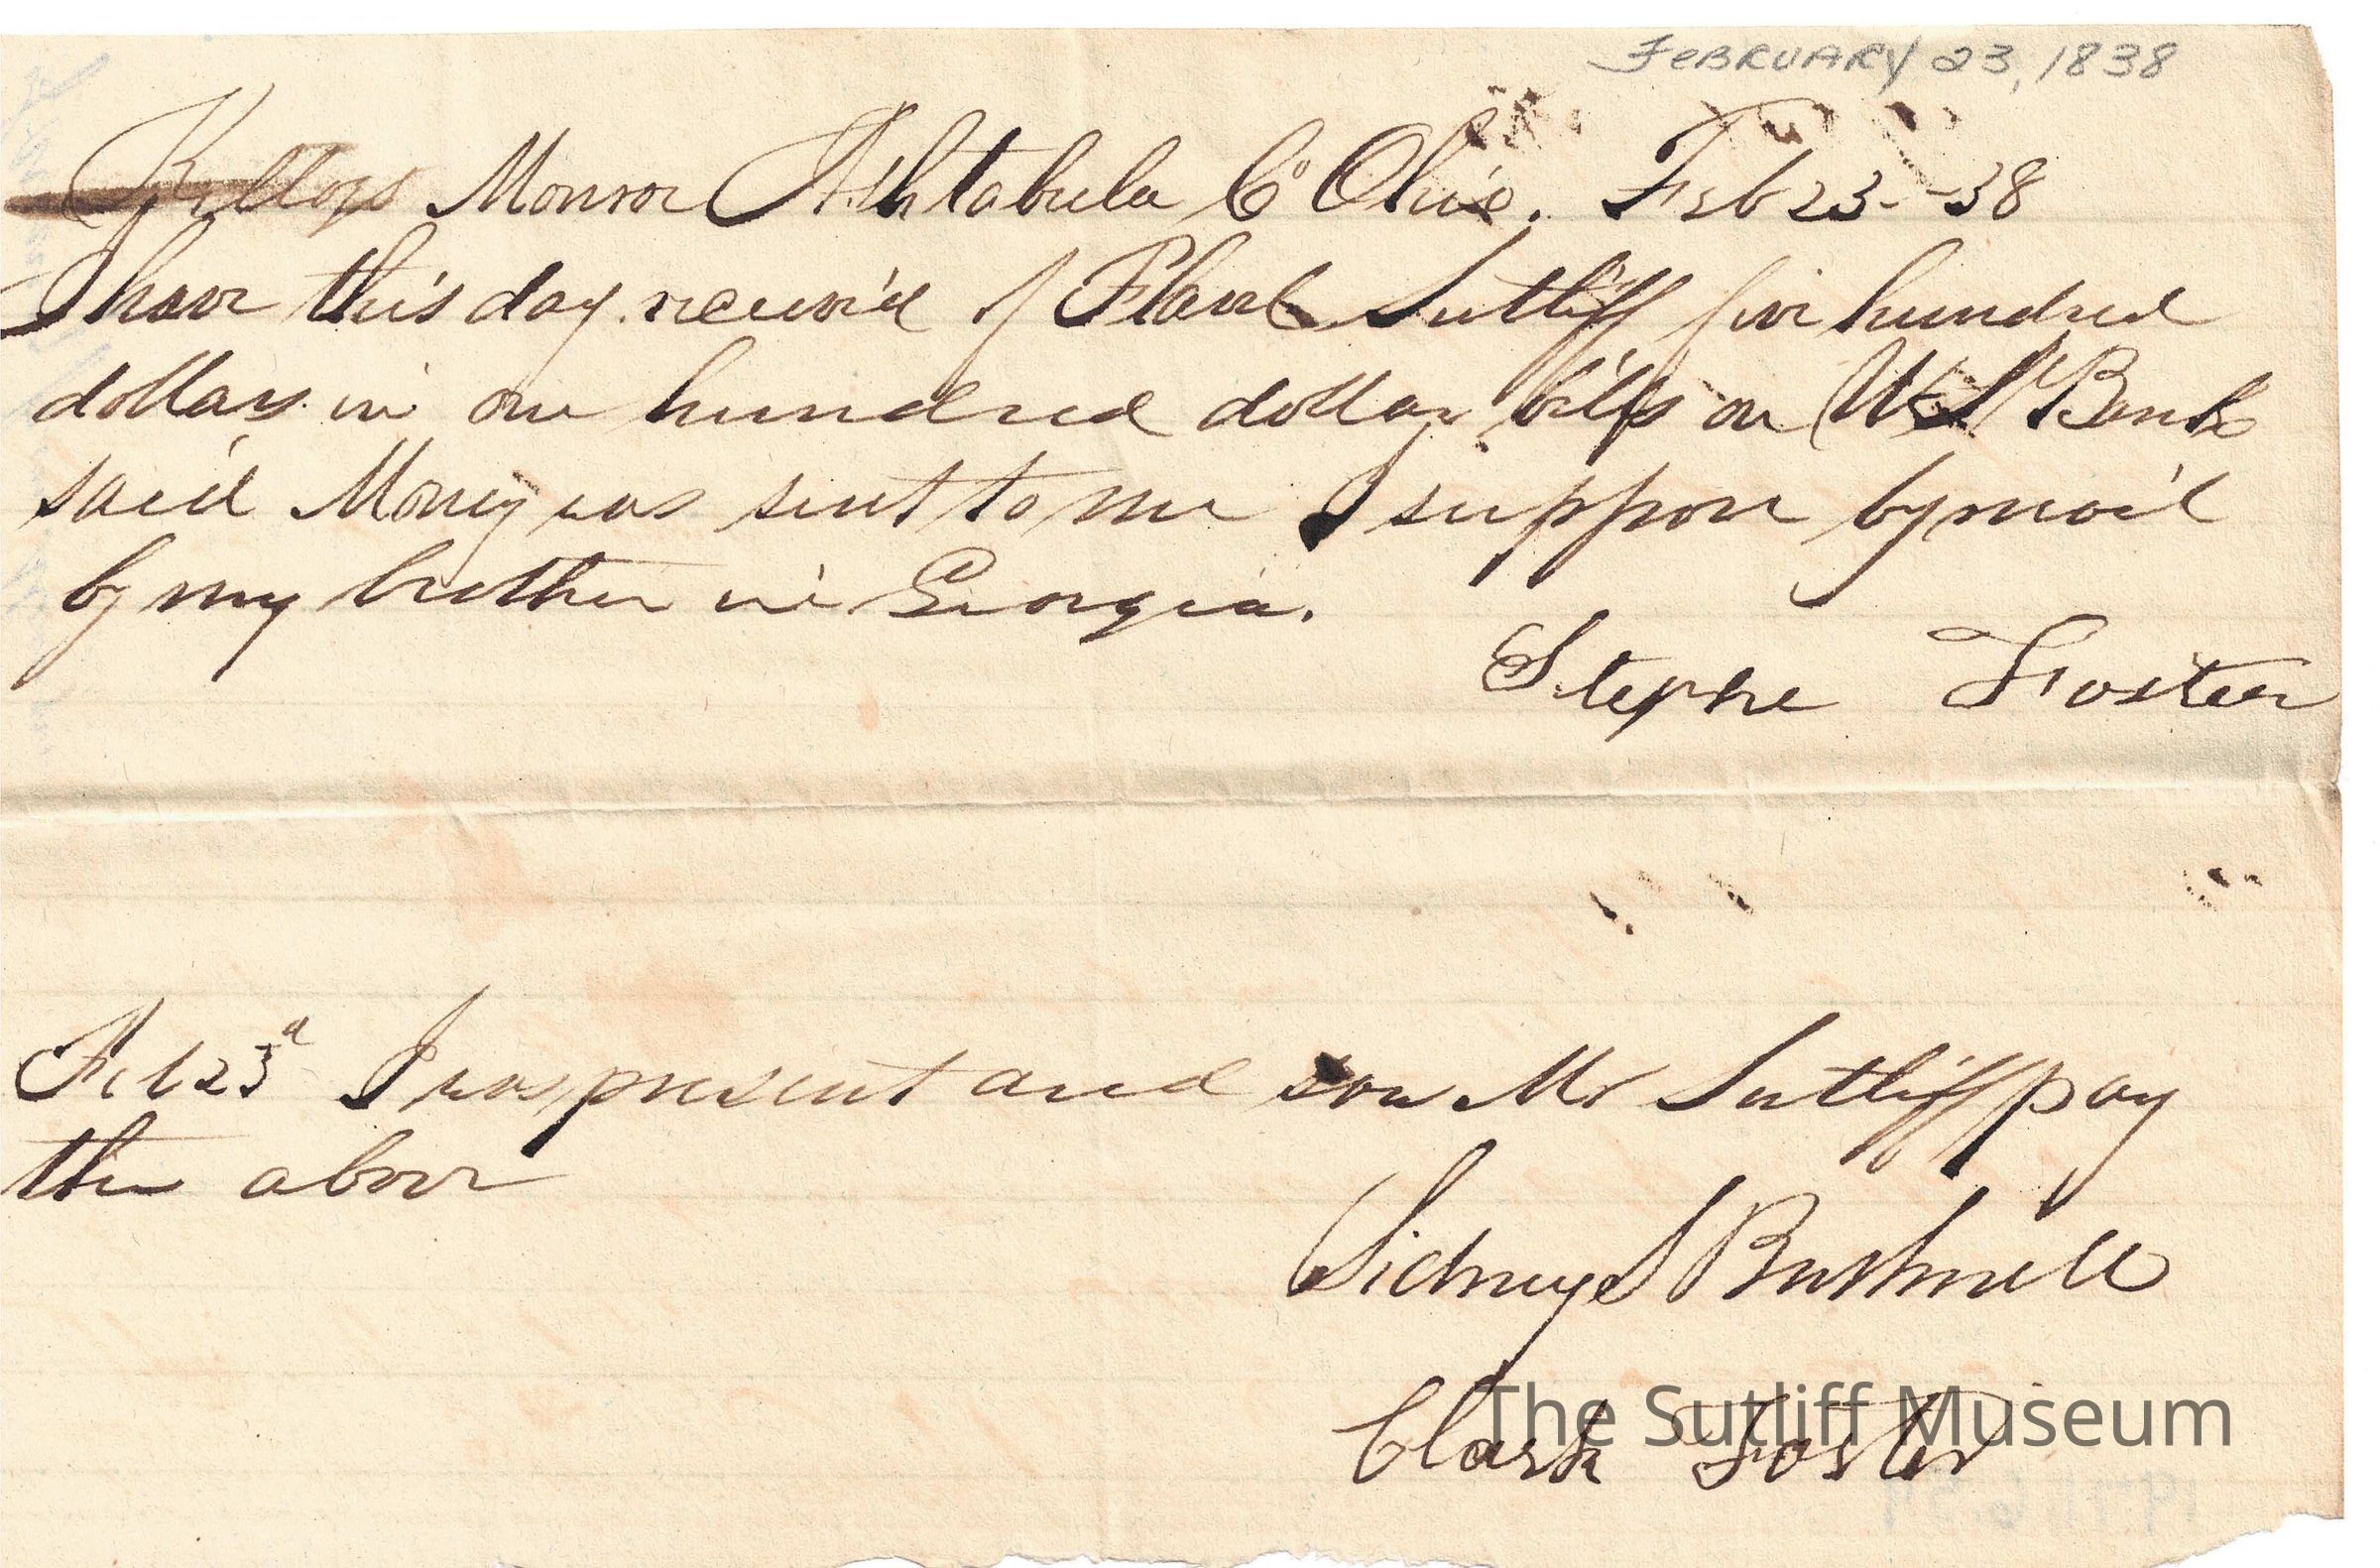 FEBRUARY 23, 1838
Kelloggs Monroe Ashtabula Co Ohio. Feb 23 - 38
I have this day received of Flavel Sutliff five hundred
dollars in one hundred dollar bills on U S Bank
said Money was sent to me I suppose by mail
by my brother in Georgia.
Stephe Foster
Feb 23d I was present and saw Mr Sutliff pay
the above
Sidney S Bushnell
Clark Foster
The Sutliff Museum